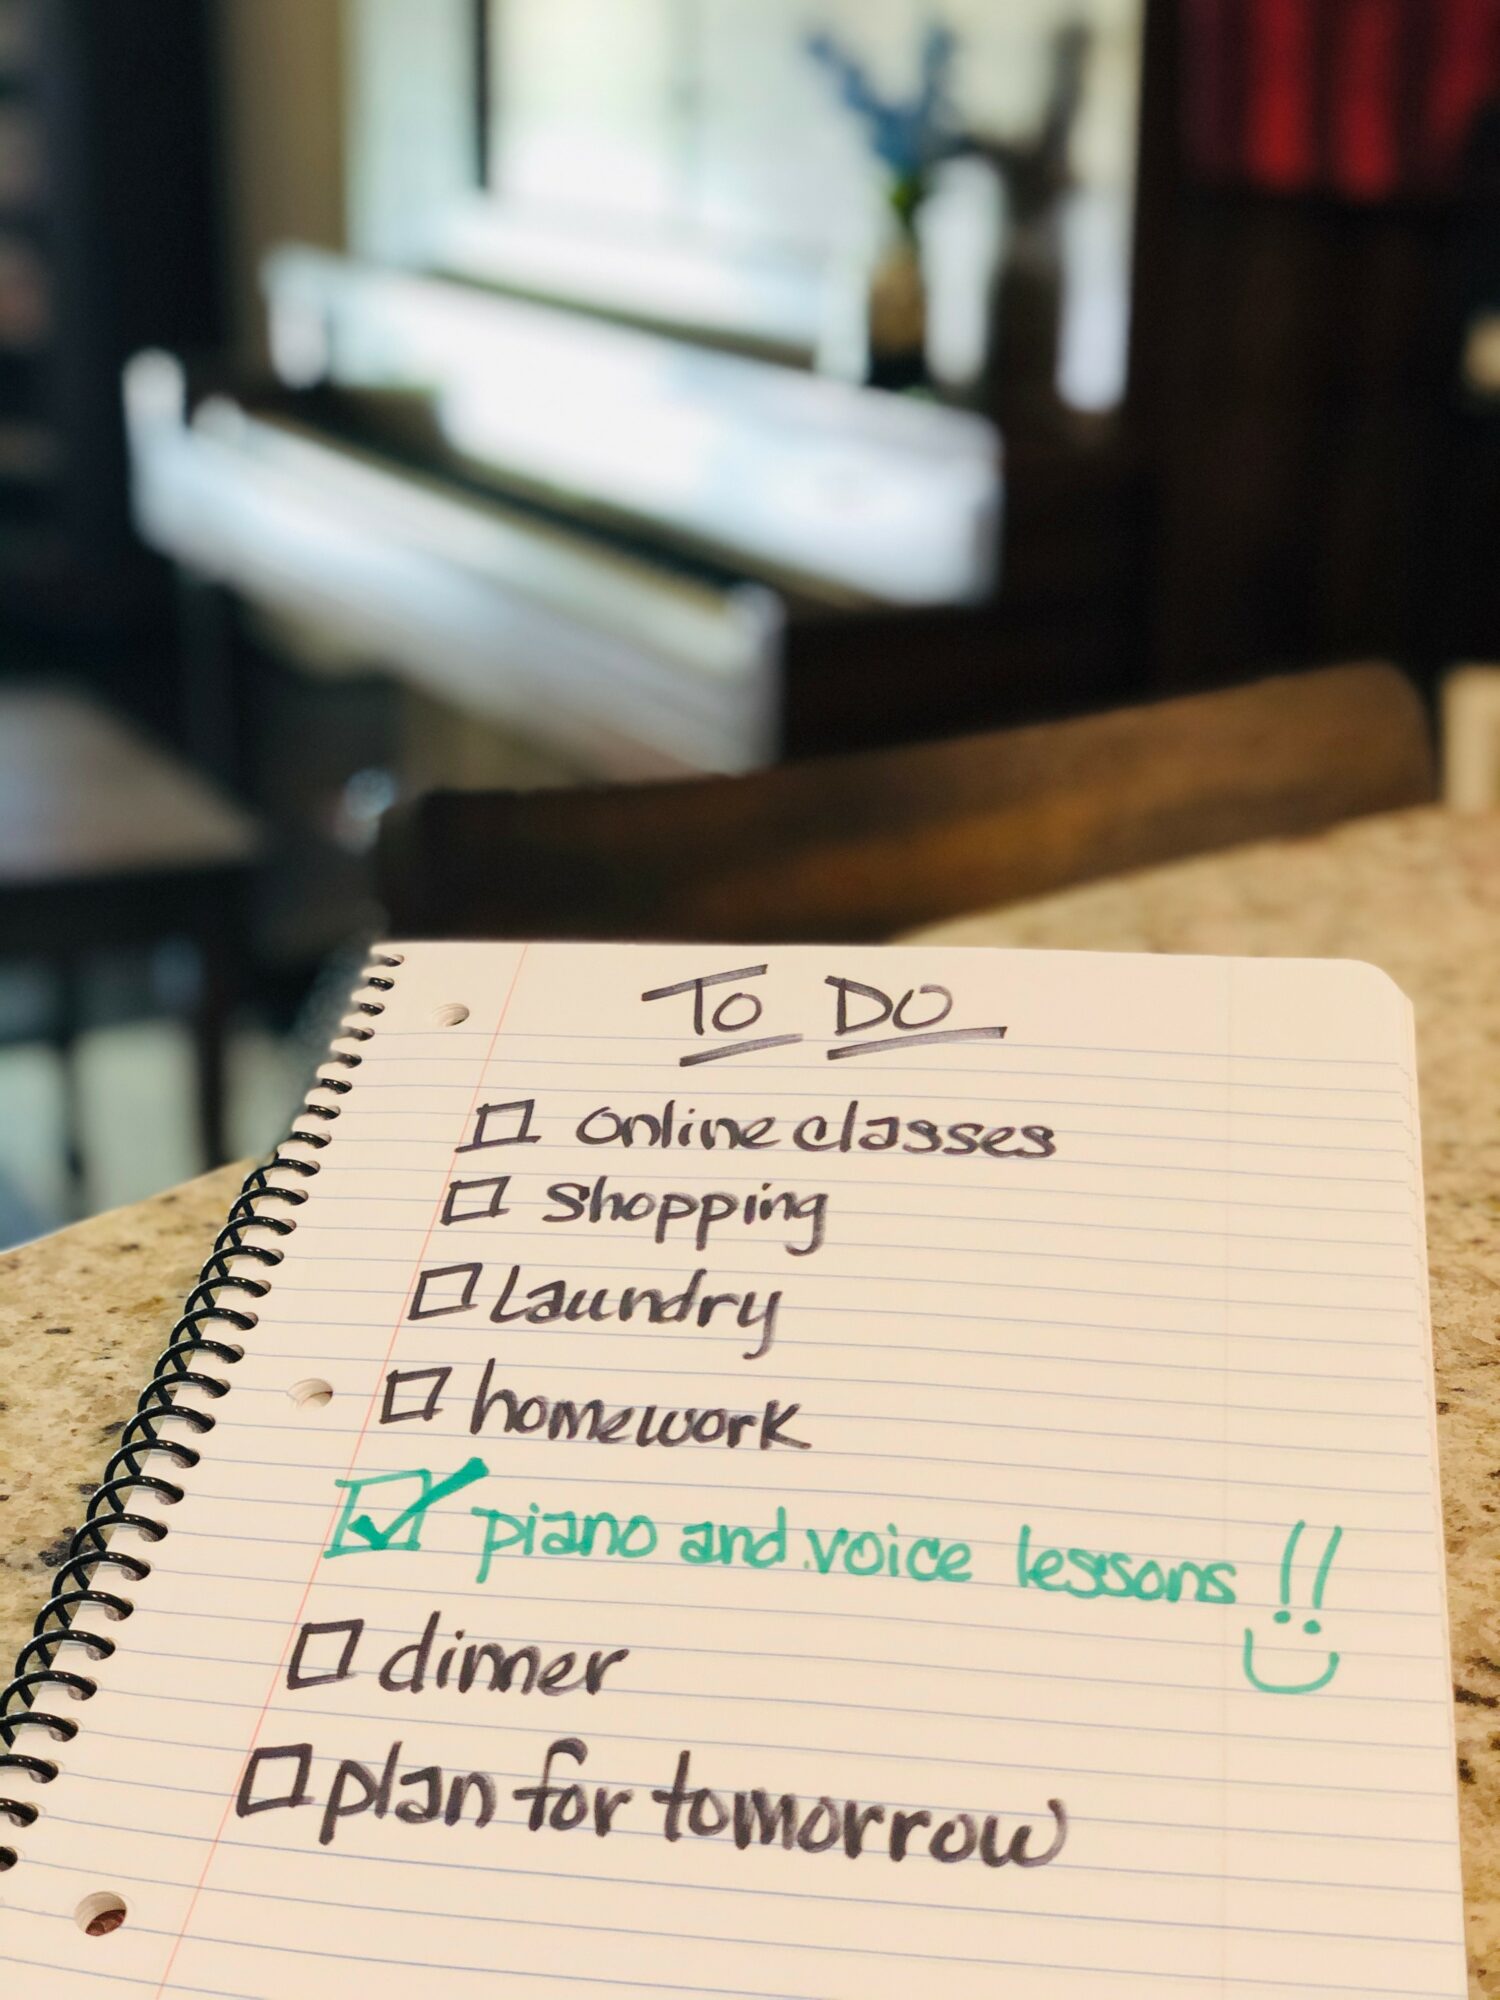 To Do
☐ online classes
☐ Shopping
☐ Laundry
☐ homework
☑ piano and voice lessons !!
☐ dinner
☐ plan for tomorrow